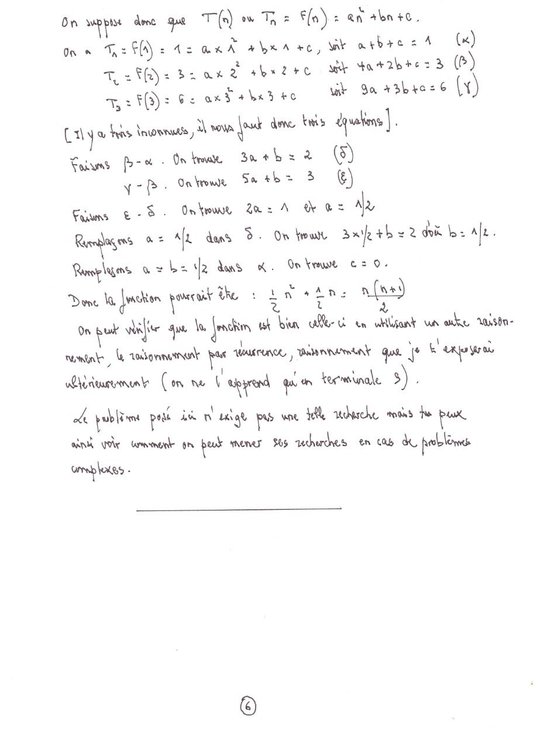 On suppose donc que T(n) ou Tn = F(n) = an² + bn + c.
On a T₁ = F(1) = 1 = a × 1² + b × 1 + c, soit a + b + c = 1 (α)
T₂ = F(2) = 3 = a × 2² + b × 2 + c soit 4a + 2b + c = 3 (β)
T₃ = F(3) = 6 = a × 3² + b × 3 + c soit 9a + 3b + c = 6 (γ)
[Il y a trois inconnues, il nous faut donc trois équations].
Faisons β - α. On trouve 3a + b = 2 (δ)
γ - β. On trouve 5a + b = 3 (ε)
Faisons ε - δ. On trouve 2a = 1 et a = 1/2
Remplaçons a = 1/2 dans δ. On trouve 3 × 1/2 + b = 2 d'où b = 1/2.
Remplaçons a = b = 1/2 dans α. On trouve c = 0.
Donc la fonction pourrait être : 1/2 n² + 1/2 n = n(n+1)/2
On peut vérifier que la fonction est bien celle-ci en utilisant un autre raison-
nement, le raisonnement par récurrence, raisonnement que je t'exposerai
ultérieurement (on ne l'apprend qu'en terminale S).
Le problème posé ici n'exige pas une telle recherche mais tu peux
ainsi voir comment on peut mener ses recherches en cas de problèmes
complexes.
6